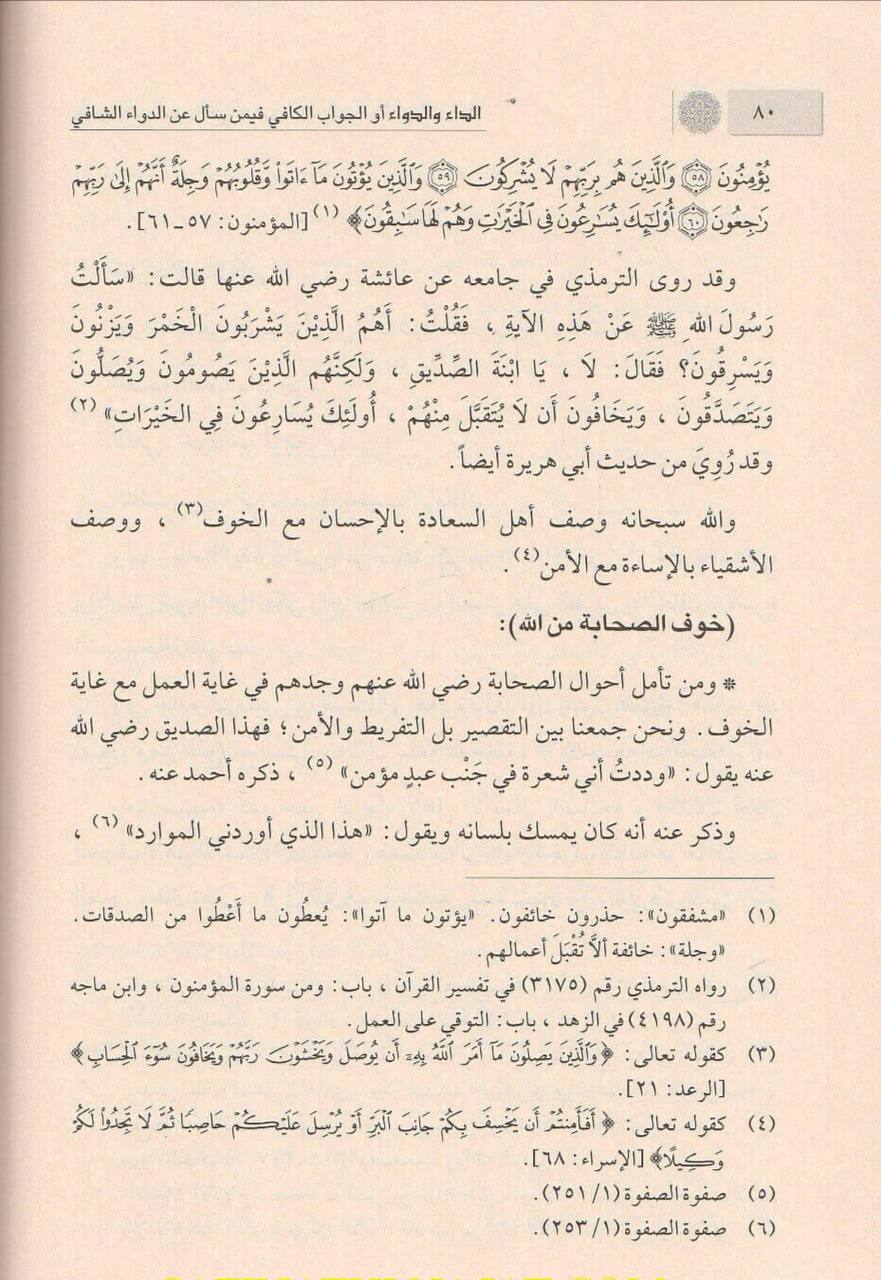 ٨٠
الداء والدواء أو الجواب الكافي فيمن سأل عن الدواء الشافي
يُؤْمِنُونَ ٥٨ وَالَّذِينَ هُم بِرَبِّهِمْ لَا يُشْرِكُونَ ٥٩ وَالَّذِينَ يُؤْتُونَ مَا ءَاتَوا وَّقُلُوبُهُمْ وَجِلَةٌ أَنَّهُمْ إِلَىٰ رَبِّهِمْ
رَاجِعُونَ ٦٠ أُوْلَٰئِكَ يُسَارِعُونَ فِي الْخَيْرَاتِ وَهُمْ لَهَا سَابِقُونَ﴾ (١) [المؤمنون: ٥٧ـ٦١].
وقد روى الترمذي في جامعه عن عائشة رضي الله عنها قالت: «سَأَلْتُ
رَسُولَ اللهِ ﷺ عَنْ هَذِهِ الآيَةِ ، فَقُلْتُ: أَهُمُ الَّذِينَ يَشْرَبُونَ الْخَمْرَ وَيَزْنُونَ
وَيَسْرِقُونَ؟ فَقَالَ: لاَ ، يَا ابْنَةَ الصِّدِّيقِ ، وَلَكِنَّهُم الَّذِيْنَ يَصُومُونَ وَيُصَلُّونَ
وَيَتَصَدَّقُونَ ، وَيَخَافُونَ أَن لاَ يُتَقَبَّلَ مِنْهُمْ ، أُولَئِكَ يُسَارِعُونَ فِي الخَيْرَاتِ» (٢)
وقد رُوِيَ من حديث أبي هريرة أيضاً.
والله سبحانه وصف أهل السعادة بالإحسان مع الخوف(٣) ، ووصف
الأشقياء بالإساءة مع الأمن(٤).
(خوف الصحابة من الله):
* ومن تأمل أحوال الصحابة رضي الله عنهم وجدهم في غاية العمل مع غاية
الخوف. ونحن جمعنا بين التقصير بل التفريط والأمن؛ فهذا الصديق رضي الله
عنه يقول: «وددتُ أني شعرة في جَنْب عبدٍ مؤمن» (٥) ، ذكره أحمد عنه.
وذكر عنه أنه كان يمسك بلسانه ويقول: «هذا الذي أوردني الموارد» (٦) ،
(١) «مشفقون»: حذرون خائفون. «يؤتون ما آتوا»: يُعطُون ما أَعْطُوا من الصدقات.
«وجلة»: خائفة ألاَّ تُقْبَلَ أعمالهم.
(٢) رواه الترمذي رقم (٣١٧٥) في تفسير القرآن ، باب: ومن سورة المؤمنون ، وابن ماجه
رقم (٤١٩٨) في الزهد ، باب: التوقي على العمل.
(٣) كقوله تعالى: ﴿وَالَّذِينَ يَصِلُونَ مَا أَمَرَ اللَّهُ بِهِ أَن يُوصَلَ وَيَخْشَوْنَ رَبَّهُمْ وَيَخَافُونَ سُوءَ الْحِسَابِ﴾
[الرعد: ٢١].
(٤) كقوله تعالى: ﴿أَفَأَمِنتُمْ أَن يَخْسِفَ بِكُمْ جَانِبَ الْبَرِّ أَوْ يُرْسِلَ عَلَيْكُمْ حَاصِبًا ثُمَّ لَا تَجِدُوا لَكُمْ
وَكِيلًا﴾ [الإسراء: ٦٨].
(٥) صفوة الصفوة (١/ ٢٥١).
(٦) صفوة الصفوة (١/ ٢٥٣).